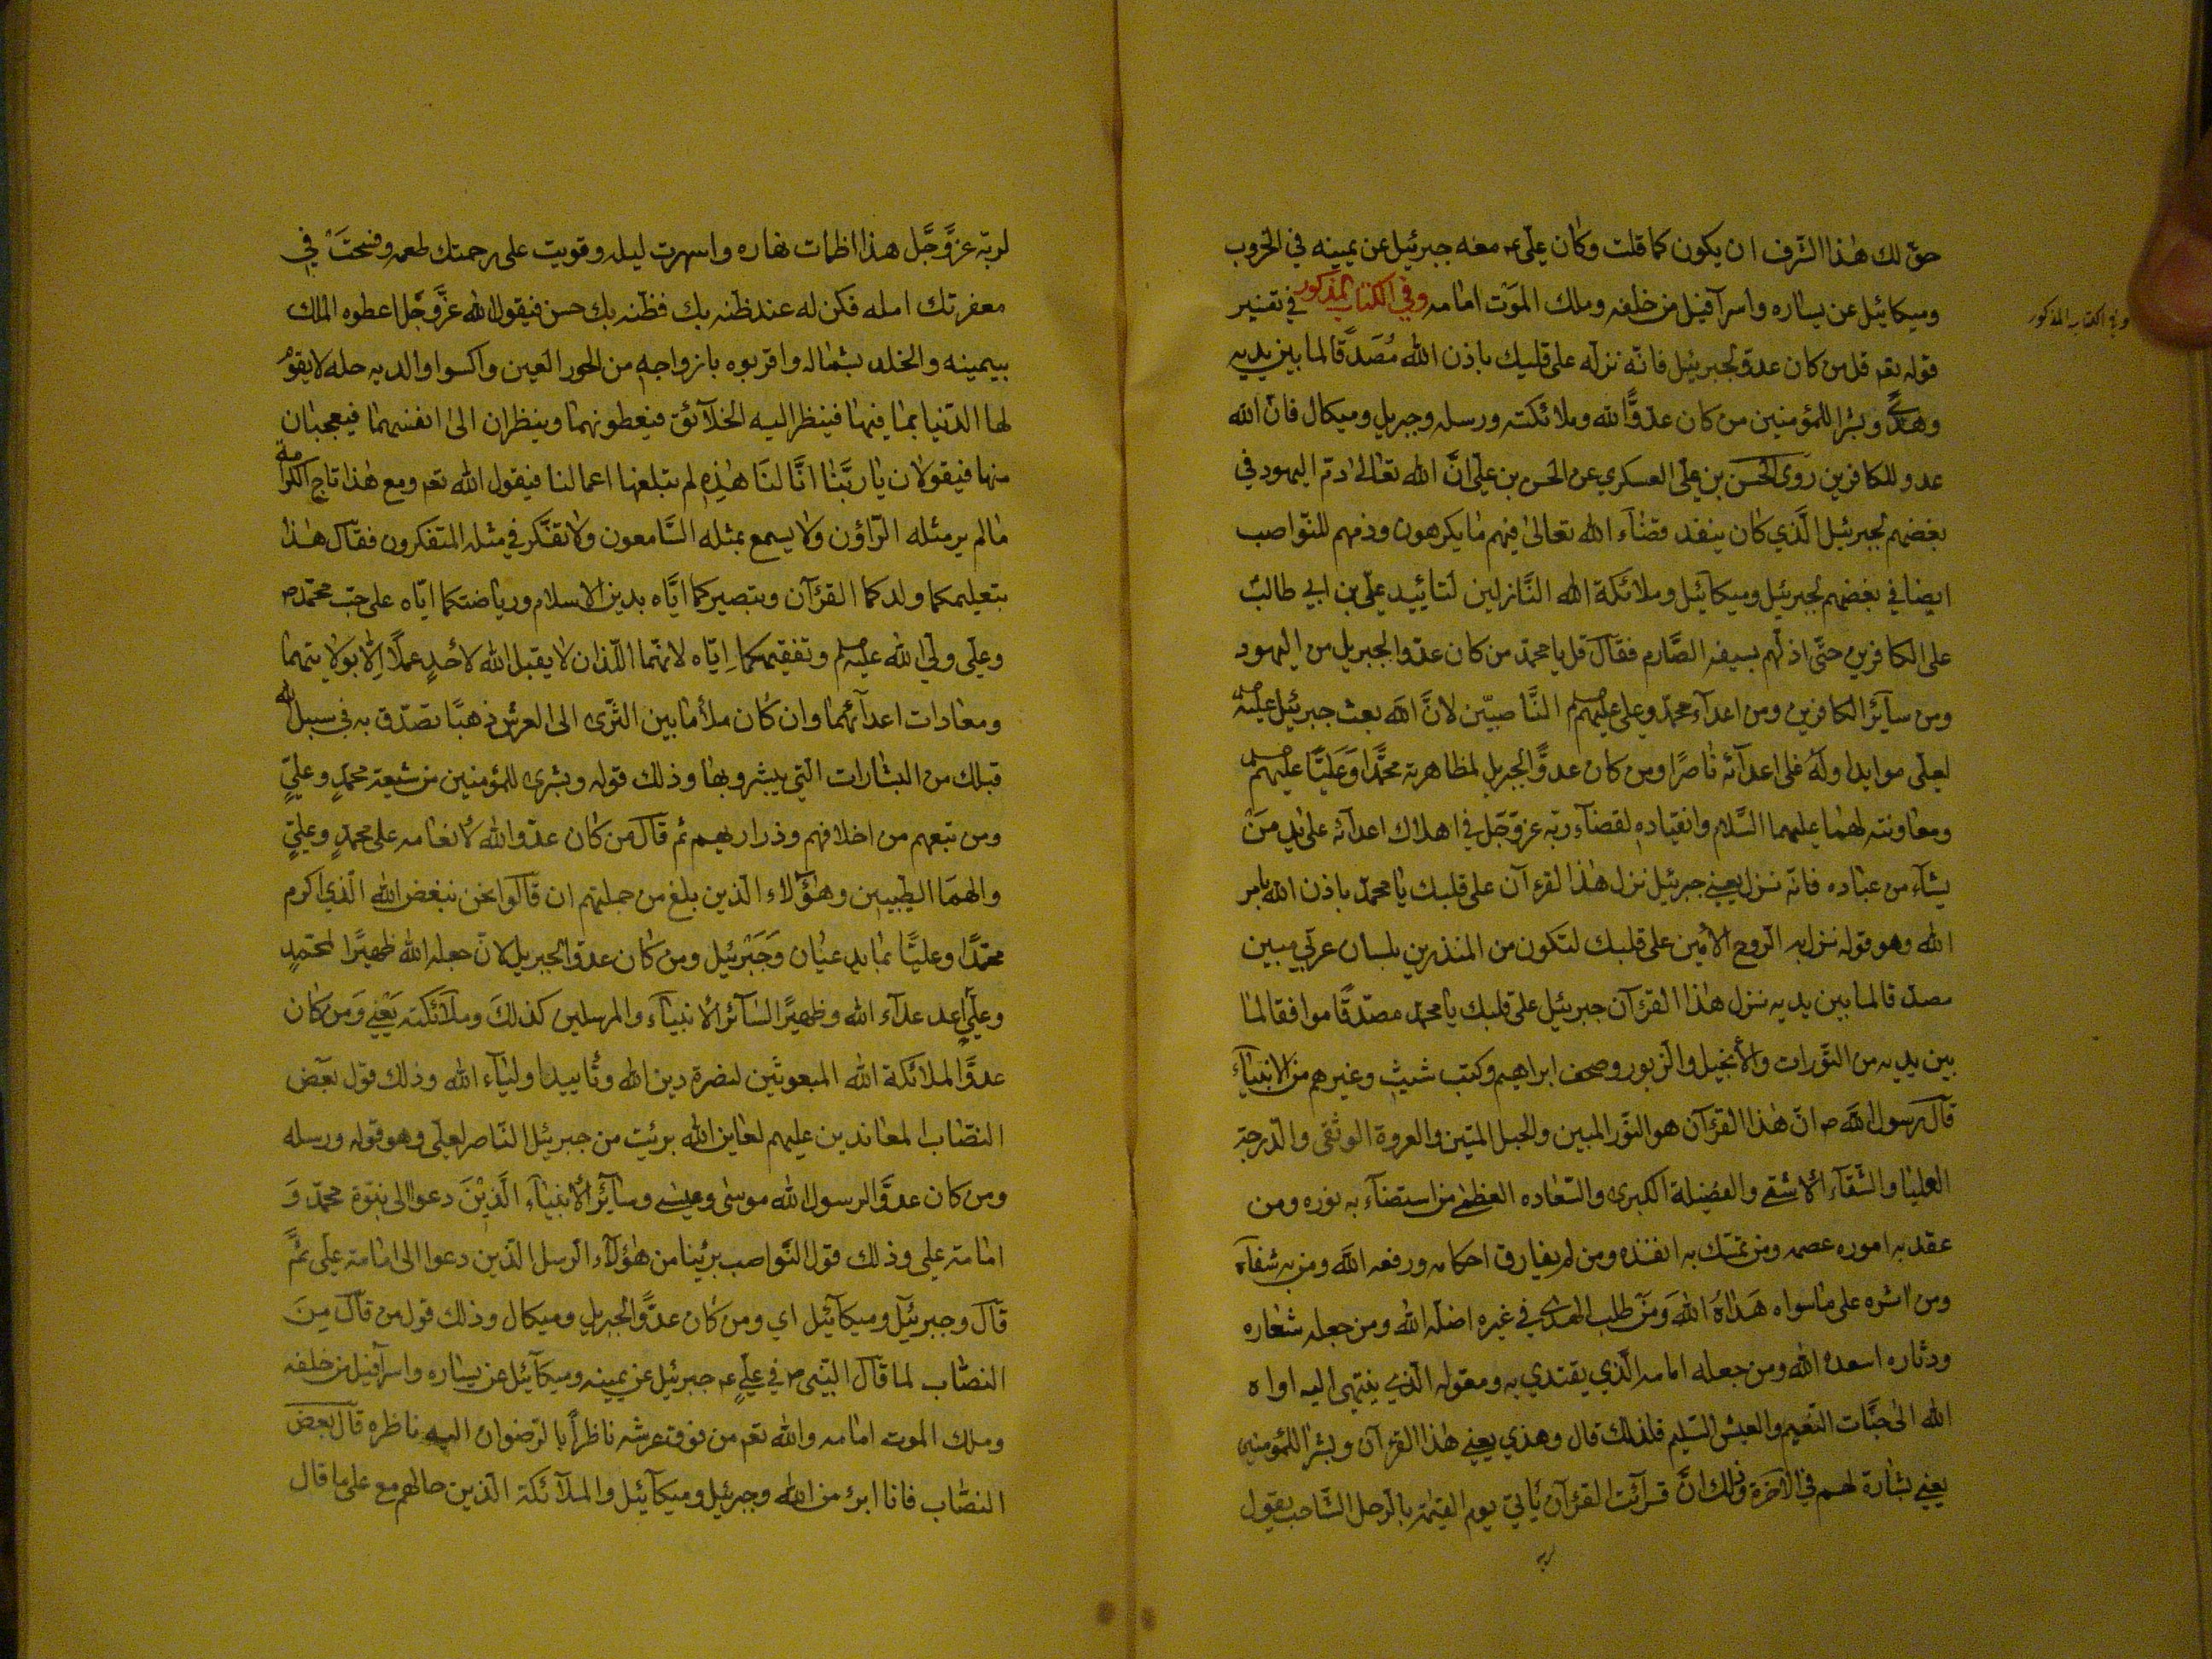 حق لك هذا الشرف ان يكون كما قلت وكان علي ع معه جبرئيل عن يمينه في الحروب
وميكائيل عن يساره واسرآفيل من خلفه وملك الموت امامه وفي الكتاب المذكور في تفسير
قوله تعم قل من كان عدوّ لجبرئيل فانّه نزله على قلبك باذن الله مُصَدّقًا لما بين يديه
وهدىً وبشرا للمؤمنين من كان عدوًّا لله وملائكته ورسله وجبريل وميكال فانّ الله
عدو للكافرين روى الحسن بن علي العسكري عن الحسن بن علي انَّ الله تعالى ذمّ اليهود في
بغضهم لجبرئيل الَّذي كان ينفذ قضآء الله تعالى فيهم ما يكرهون وذمهم للنّواصب
ايضا في بغضهم لجبرئيل وميكائيل وملائكة الله النَّازلين لتائييد علي بن ابي طالب
على الكافرين حتّى اذلّهم بسيفه الصَّارم فقال قل يا محمّد من كان عدّوا لجبريل من اليهود
ومن سآئر الكافرين ومن اعدآء محمّد وعلي عليهم النَّاصبيّن لانَّ الله بعث جبرئيل
لعلّي موايدا وله على اعدآئه ناصرًا ومن كان عدوًّا لجبريل لمظاهرته محمَّدًا وَعَليًّا عليهم
ومعاونته لهما عليهما السَّلام وانقياده لقضآء ربّه عزوّجَلّ في اهلاك اعدآئه على يد منَ
يشآء من عباده فانّه نزل يعني جبرئيل نزل هذا القرءآن على قلبك يا محمّد باذن الله بامر
الله وهو قوله نزل به الرّوح الأمين على قلبك لتكون من المنذرين بلسان عربّي مبين
مصدّقا لما بين يديه نزل هذا القرءآن جبرئيل على قلبك يا محمّد مصدّقًا موافقا لما
بين يديه من التّورات والأنجيل والزبور وصحف ابراهيم وكتب شيث وغيرهم من الانبيآء
قآل رسول الله ص انّ هذا القرءآن هو النّور المبين والحبل المتين والعروة الوثقى والدّرجة
العليا والشّفآء الاشفى والفضيلة الكبرى والسّعاده العظمى من استضآء به نوره ومن
عقد به اموره عصمه ومن تمسّك به انقذه ومن لم يفارق احكامه ورفعه الله ومن به شفآه
ومن اثره على ما سواه هَدَاهُ اللهُ وَمَن طلب الهدى في غيره اضلّه الله ومن جعله شعاره
ودثاره اسعدهُ الله ومن جعله امامه الَّذي يقتدي به ومعوله الّذي ينتهي اليه اواه
الله الى جنَّات النّعيم والعيش السّليم فلذلك قال وهدي يعني هذا القرءآن وبشرا للمؤمنين
يعني بشارة لهم في الآخرة وذلك انَّ قرآئت القرءآن يأتي يوم القيمة بالرّجل الشّاحب يقول
لربّه عزَّوجَّل هذا اظمات نهاره واسهرت ليله وقويت على رحمتك طمعه وفسحتَ في
مغفرتك امله فكن له عند ظنّه بك فظنّه بك حسن فيقول الله عزَّوجَّل اعطوه الملك
بيمينه والخلد بشماله واقربوه بازواجه من الحور العين واكسوا والديه حله لا يقوم
لها الدّنيا بما فيها فينظر اليه الخلآئق فيعطونهما وينظران الى انفسهما فيعجبان
منها فيقولان يا ربَّنا انَّا لنَا هٰذِهِ لم تبلغها اعمالنا فيقول الله تعم ومع هذا تاج الكرامة
مالم ير مثله الرّاؤن ولا يسمع بمثله السَّامعون ولا تفكّر في مثله المتفكرون فقال هذا
بتعليمكما ولدكما القرءآن وبتصيركما ايَّاه بدين الاسلام ورياضتكما ايّاه على حبّ محمّد ص
وعلى ولّي الله وتفقيهكما اِيّاه لانهما اللّذان لا يقبل الله لأحدٍ عملًا اِلّا بولايتهما
ومعادات اعدآئهما وان كان ملأ ما بين الثّرى الى العرش ذهبًا تصدّق به في سبيل الله
قبلك من البشارات التي يبشرو بها وذلك قوله وبشرى للمؤمنين من شيعة محمّدٍ وعليٍّ
ومن تبعهم من اخلافهم وذراريهم ثم قآل من كان عدوّا لله لانعامه على محمّدٍ وعليٍّ
والهما الطيّبين وهؤلاء الّذين بلغ من جملتهم ان قآلوا نحن نبغض الله الّذي اكرم
محمّدًا وعليًّا بما يدعيان وَجَبَرئيل ومن كان عدوّا لجبريل لانّ جعله الله ظهيرًا لمحمّدٍ
وعليٍّ اعد عدآء الله وظهيرًا لسآئر الانبيآء والمرسلين كذلكَ وملآئكته يَعْنِي وَمن كان
عدوًّا لملآئكة الله المبعوثين لنصرة دين الله وتأييدا وليآء الله وذلك قول بعض
النصّاب المعاندين عليهم لعاين الله برئيت من جبرئيل النّاصر لعلي وهو قوله ورسله
ومن كان عدوًّا لرسول الله موسى وعيسى وسآئر الأنبيآء الَّذيْنَ دعوا الى نبوّة محمّد وَ
امامة علي وذلك قول النّواصب برئينا من هؤلآء الرسل الّذين دعوا الى امامة علّي ثمَّ
قآل وجبرئيل وميكآئيل اي ومن كان عدوًّا لجبريل وميكال وذلك قول من قآل مِنَ
النصّاب لما قآل النبّي ص في عليٍّ ع جبرئيل عن يمينه وميكآئيل عن يساره واسرآفيل من خلفه
وملك الموت امامه والله تعم من فوق عرشه ناظراً بالرّضوان اليه ناظره قآل بعض
النصّاب فانا ابرؤ من الله وجبرئيل وميكآئيل والملآئكة الّذين حالهم مع علي ما قال
لربه
وفي الكتاب المذكور